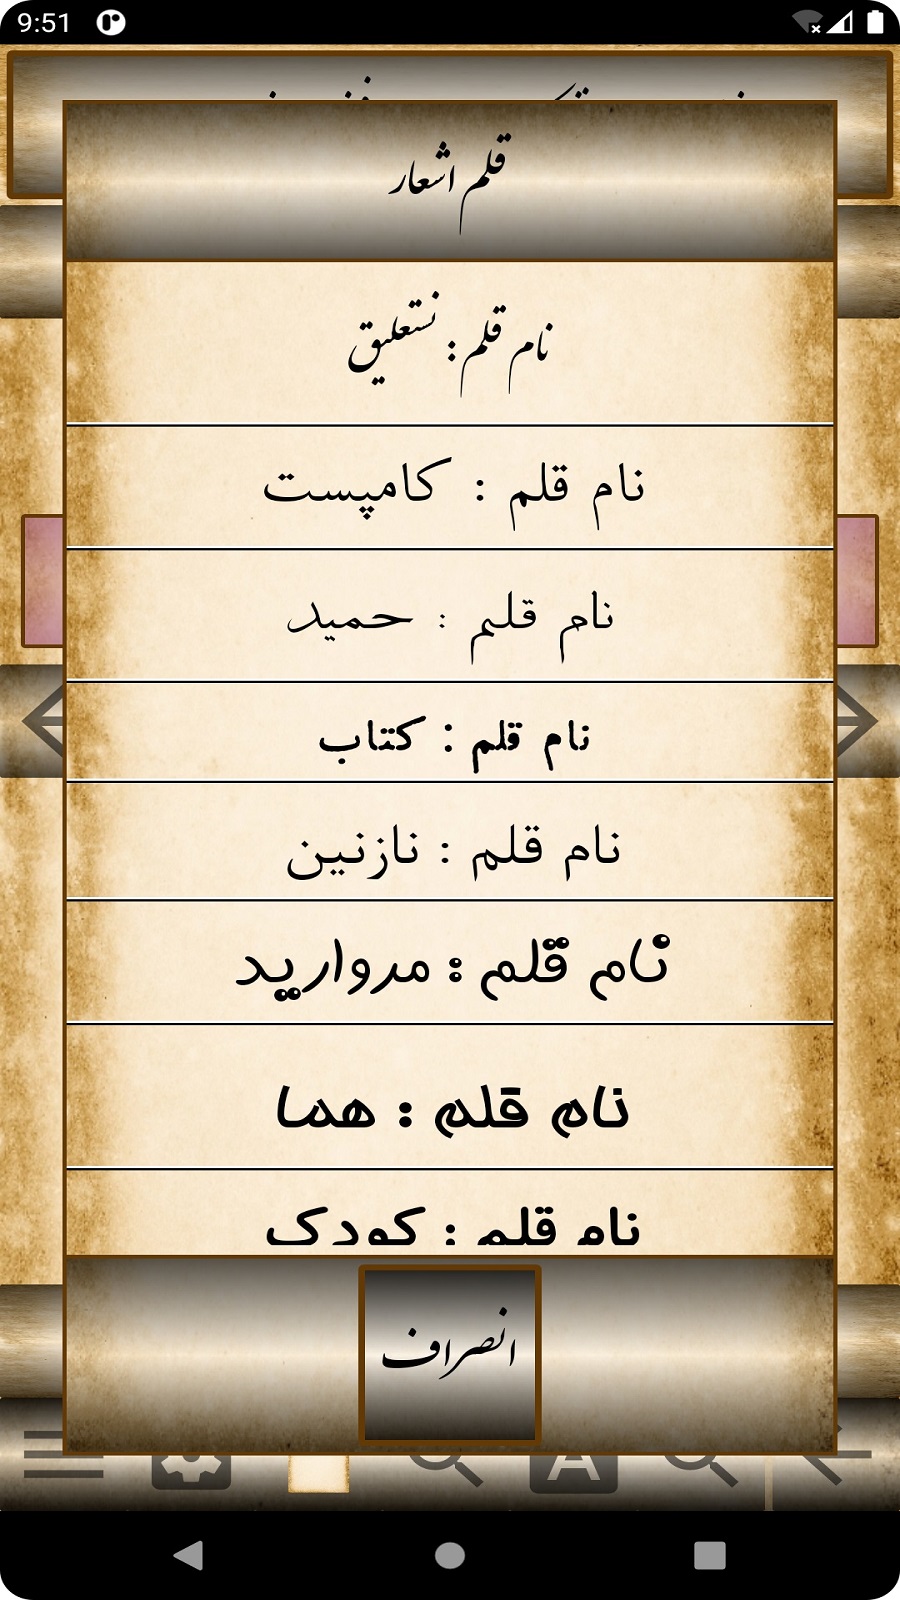 9:51
قلم اشعار
نام قلم : نستعلیق
نام قلم : کامپست
نام قلم : حمید
نام قلم : کتاب
نام قلم : نازنین
نام قلم : مروارید
نام قلم : هما
نام قلم : کودک
انصراف
A